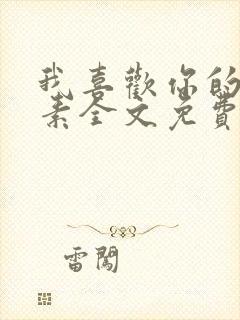 我喜歡你的
素全文免費
雷闖